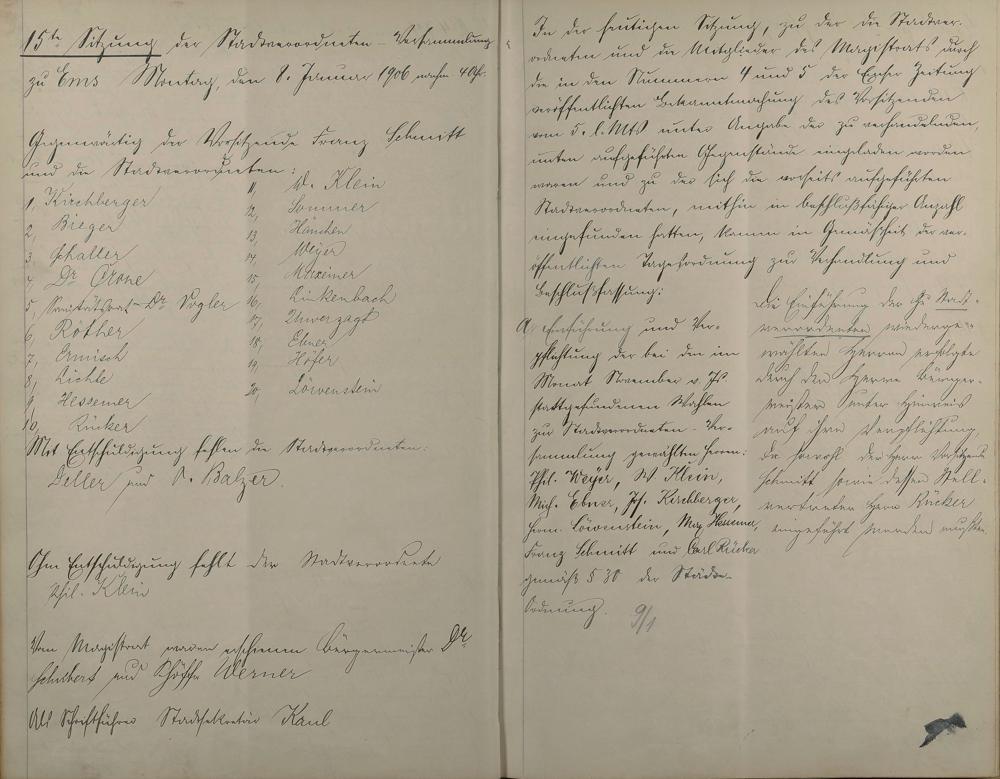 15te Sitzung der Stadtverordneten-Versammlung
zu Ems Montag, den 8. Januar 1906 nachm. 4 Uhr.
Gegenwärtig der Vorsitzende Franz Schmitt
und die Stadtverordneten:
1, Kirchberger
2, Bieger
3, Schaller
4, Dr Crone
5, Sanitätsrat Dr Vogler
6, Rother
7, Ermisch
8, Lichte
9, Hessemer
10, Rücker
11, W. Klein
12, Sommer
13, Hänchen
14, Weyer
15, Mexeimer
16, Linkenbach
17, Unverzagt
18, Ebner
19, Höfer
20, Löwenstein
Mit Entschuldigung fehlen die Stadtverordneten:
Deller und A. Balzer.
Ohne Entschuldigung fehlt der Stadtverordnete
Phil. Klein
Vom Magistrat waren erschienen Bürgermeister Dr
Schubert und Schöffe Werner
Als Schriftführer Stadtsekretär Kaul
In der heutigen Sitzung, zu der die Stadtver-
ordneten und die Mitglieder des Magistrats durch
die in den Nummern 4 und 5 der Emser Zeitung
veröffentlichten Bekanntmachung des Vorsitzenden
vom 5. l. Mts unter Angabe der zu verhandelnden,
unten aufgeführten Gegenstände eingeladen worden
waren und zu der sich die vorseits aufgeführten
Stadtverordneten, mithin in beschlußfähiger Anzahl
eingefunden hatten, kamen in Gemäßheit der ver-
öffentlichten Tagesordnung zur Verhandlung und
Beschlußfassung:
A. Einführung und Ver-
pflichtung der bei den im
Monat November v. Js.
stattgefundenen Wahlen
zur Stadtverordneten-Ver-
sammlung gewählten Herren:
Phil. Weyer, W. Klein,
Mich. Ebner, Jos. Kirchberger,
Herm. Löwenstein, Max Hessemer,
Franz Schmitt und Carl Rücker
gemäß § 30 der Städte-
Ordnung.
9/1
Die Einführung der zu Stadt-
verordneten wiederge-
wählten Herren erfolgte
durch den Herrn Bürger-
meister unter Hinweis
auf ihre Verpflichtung,
da sowohl der Herr Vorsitzende
Schmitt sowie dessen Stell-
vertreter Herr Rücker
eingeführt werden mußten.